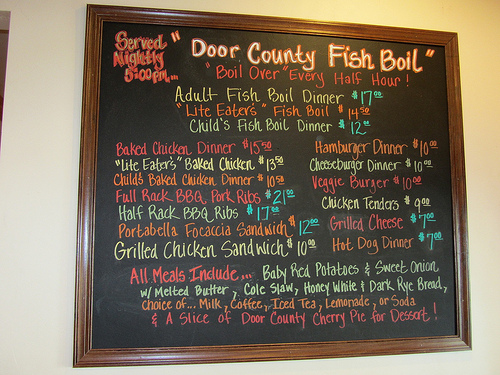 Served Nightly 5:00 pm...
"Door County Fish Boil"
"Boil Over" Every Half Hour!
Adult Fish Boil Dinner $17.00
"Lite Eaters" Fish Boil $14.50
Child's Fish Boil Dinner $12.00
Baked Chicken Dinner $15.50
"Lite Eaters" Baked Chicken $13.50
Childs Baked Chicken Dinner $10.50
Full Rack BBQ Pork Ribs $21.00
Half Rack BBQ Ribs $17.00
Portabella Focaccia Sandwich $12.00
Grilled Chicken Sandwich $10.00
Hamburger Dinner $10.00
Cheeseburger Dinner $10.00
Veggie Burger $10.00
Chicken Tenders $9.00
Grilled Cheese $7.00
Hot Dog Dinner $7.00
All Meals Include... Baby Red Potatoes & Sweet Onion
w/ Melted Butter, Cole Slaw, Honey White & Dark Rye Bread,
choice of... Milk, Coffee, Iced Tea, Lemonade, or Soda
& A Slice of Door County Cherry Pie for Dessert!